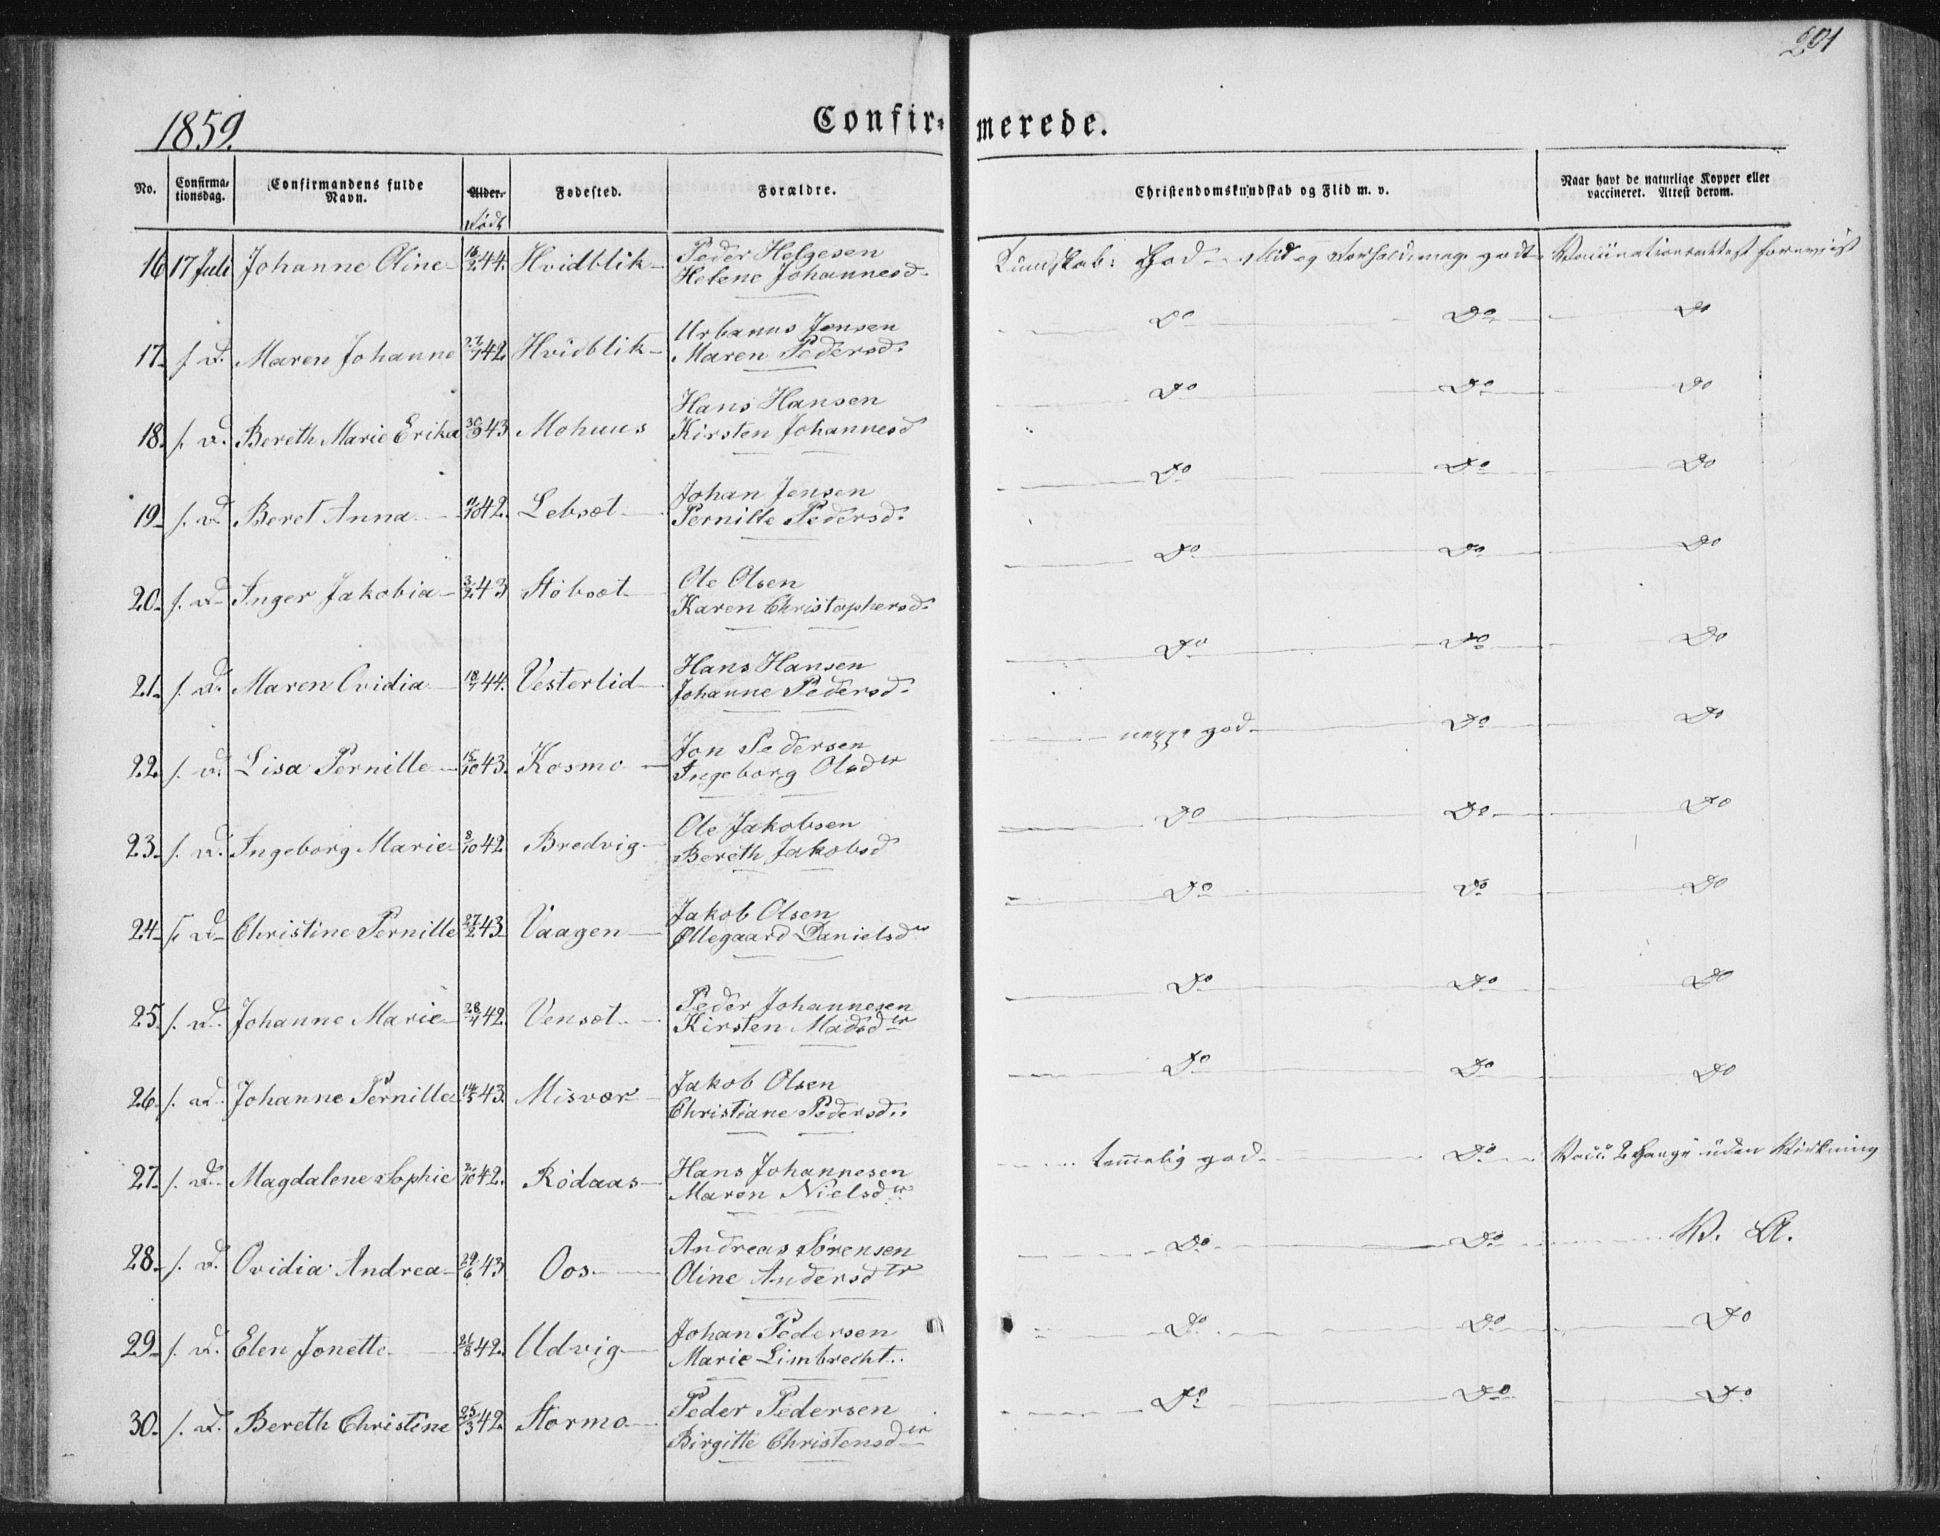 201
1859.
Confir= merede.
No. Confirma=tionsdag. Confirmandens fulde Navn. Alder. Födt Fødested. Forældre. Christendomskundskab og Flid m. v. Naar havt de naturlige Kopper eller vaccineret. Attest derom.
Peder Helgesen
16 17 Juli Johanne Oline 44. Hvidblik Helene Johannesd. Kundskab: God Flid og Forhold meget godt Vaccinationsattest forevist
Urbanus Jensen Do Do Do
17. s. d. Maren Johanne 27/1 42. Hvidblik Maren Pedersd.
Hans Hansen Do Do Do
18. s. d. Bereth Marie Erika 30/9 43 Mohuus Kirsten Johannesd
Johan Jensen Do Do Do
19. s. d. Beret Anna 42. Lebsøt Pernille Pedersd.
Ole Olsen Do Do Do
20. s. d. Inger Jakobia 3/2 43 Støbsøt Karen Christophersd.
Hans Hansen Do Do Do
21. s. d. Maren Ovidia 18/1 44. Vesterlid Johanne Pedersd.
Jon Pedersen neppe god Do Do
22. s. d. Lisa Pernille 15/10 43. Kosmo Ingeborg Olsdtr
Ole Jakobsen Do Do Do
23. s. d. Ingeborg Marie 8/10 42 Bredvig Bereth Jakobsd
Jakob Olsen Do Do Do
24. s. d. Christine Pernille 27/2 43 Vaagen Øllegaard Danielsdr
Peder Johannesen Do Do Do
25. s. d. Johanne Marie 28/1 42. Vensøt Kirsten Madsdtr
Jakob Olsen Do Do Do
26. s. d. Johanne Pernille 14/3 43. Misvær Christiane Pedersd.
Hans Johannesen temmelig god Do Vacc. 2 Gange uden Virkning
27. s. d. Magdalene Sophie 42. Rödaas Maren Nielsdtr
Andreas Sörensen Do Do V. A.
28. s. d. Ovidia Andrea 29/6 43 Oos Oline Andersdtr
Johan Pedersen Do Do Do
29. s. d. Elen Jonette 42. Udvig Marie Limbrecht.
Peder Pedersen Do Do Do
30. s. d. Bereth Christine 25/3 42. Stormo Birgitte Christensdtr